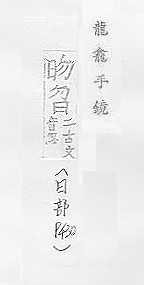 龍龕手鏡
昒㫚二古文
音忽
(日部